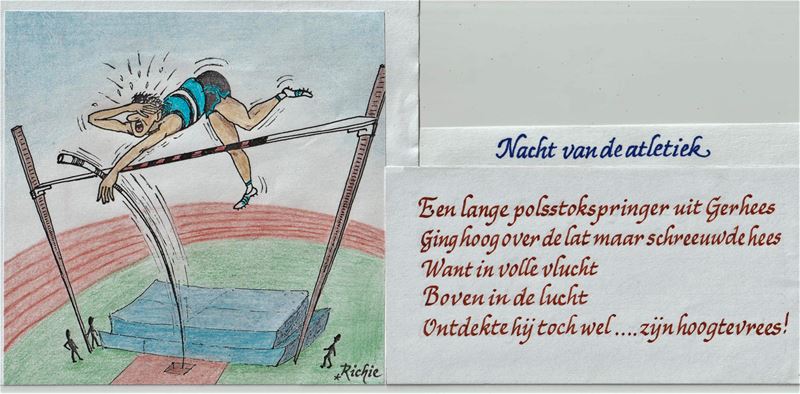 Nacht van de atletiek
Een lange polsstokspringer uit Gerhees
Ging hoog over de lat maar schreeuwde hees
Want in volle vlucht
Boven in de lucht
Ontdekte hij toch wel....zijn hoogtevrees!
*Richie